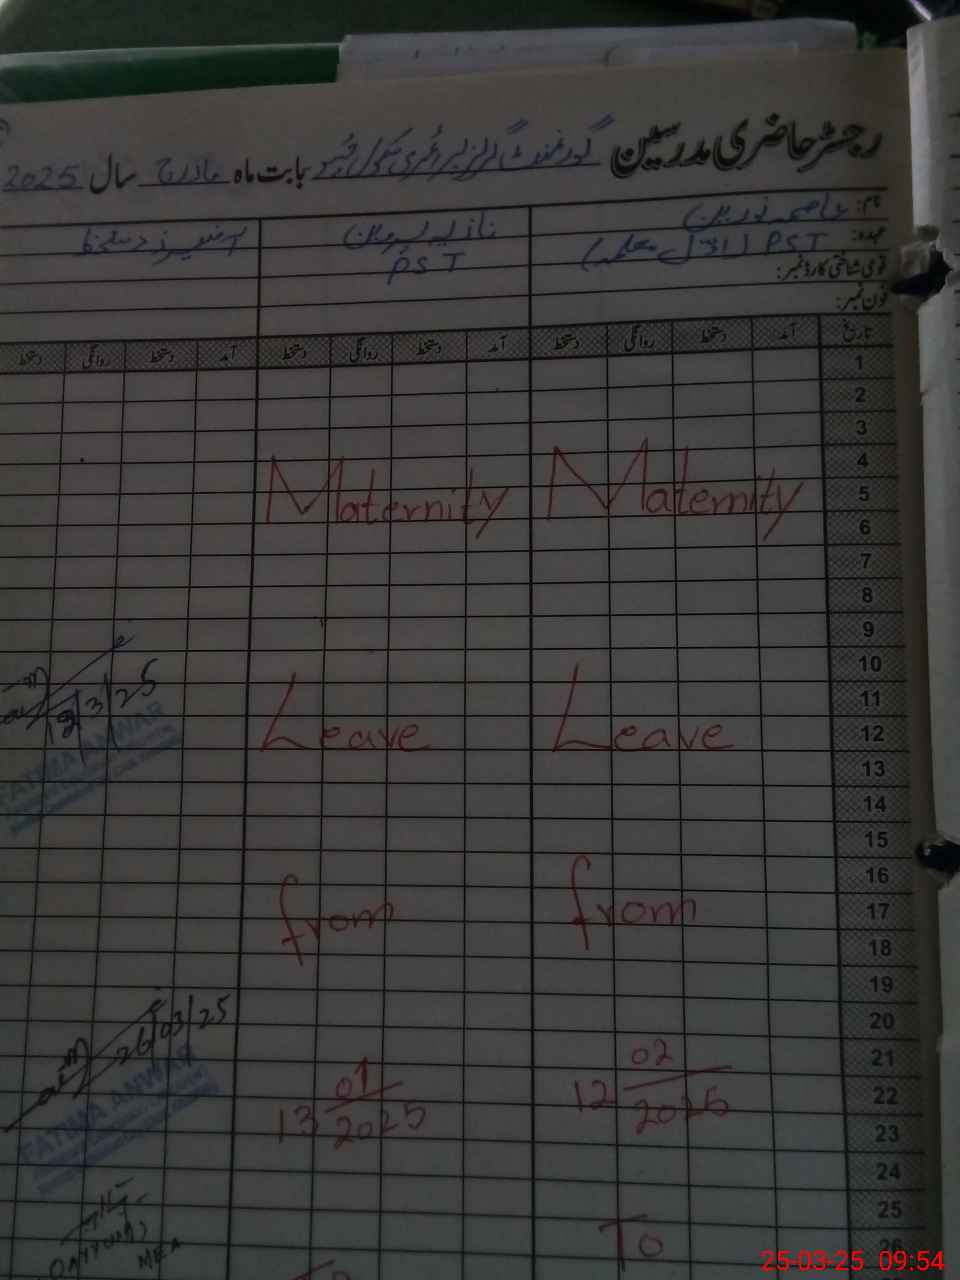 رجسٹر حاضری مدرسین گورنمنٹ گرلز پرائمری سکول بابت ماہ مارچ سال 2025
نام: عاصمہ نورین
نازیہ پروین
آفیسرز دستخط
عہدہ: PST
PST
قومی شناختی کارڈ نمبر:
فون نمبر:
تاریخ آمد دستخط روانگی دستخط آمد دستخط روانگی دستخط آمد دستخط روانگی دستخط
1
2
3
4
5
6
7
8
9
10
11
12
13
14
15
16
17
18
19
20
21
22
23
24
25
26
Maternity
Leave
from
12 02
2025
To
Maternity
Leave
from
13 01
2025
To
3/25
FATIMA ANWAR
26/03/25
FATIMA ANWAR
MEA
25-03-25 09:54